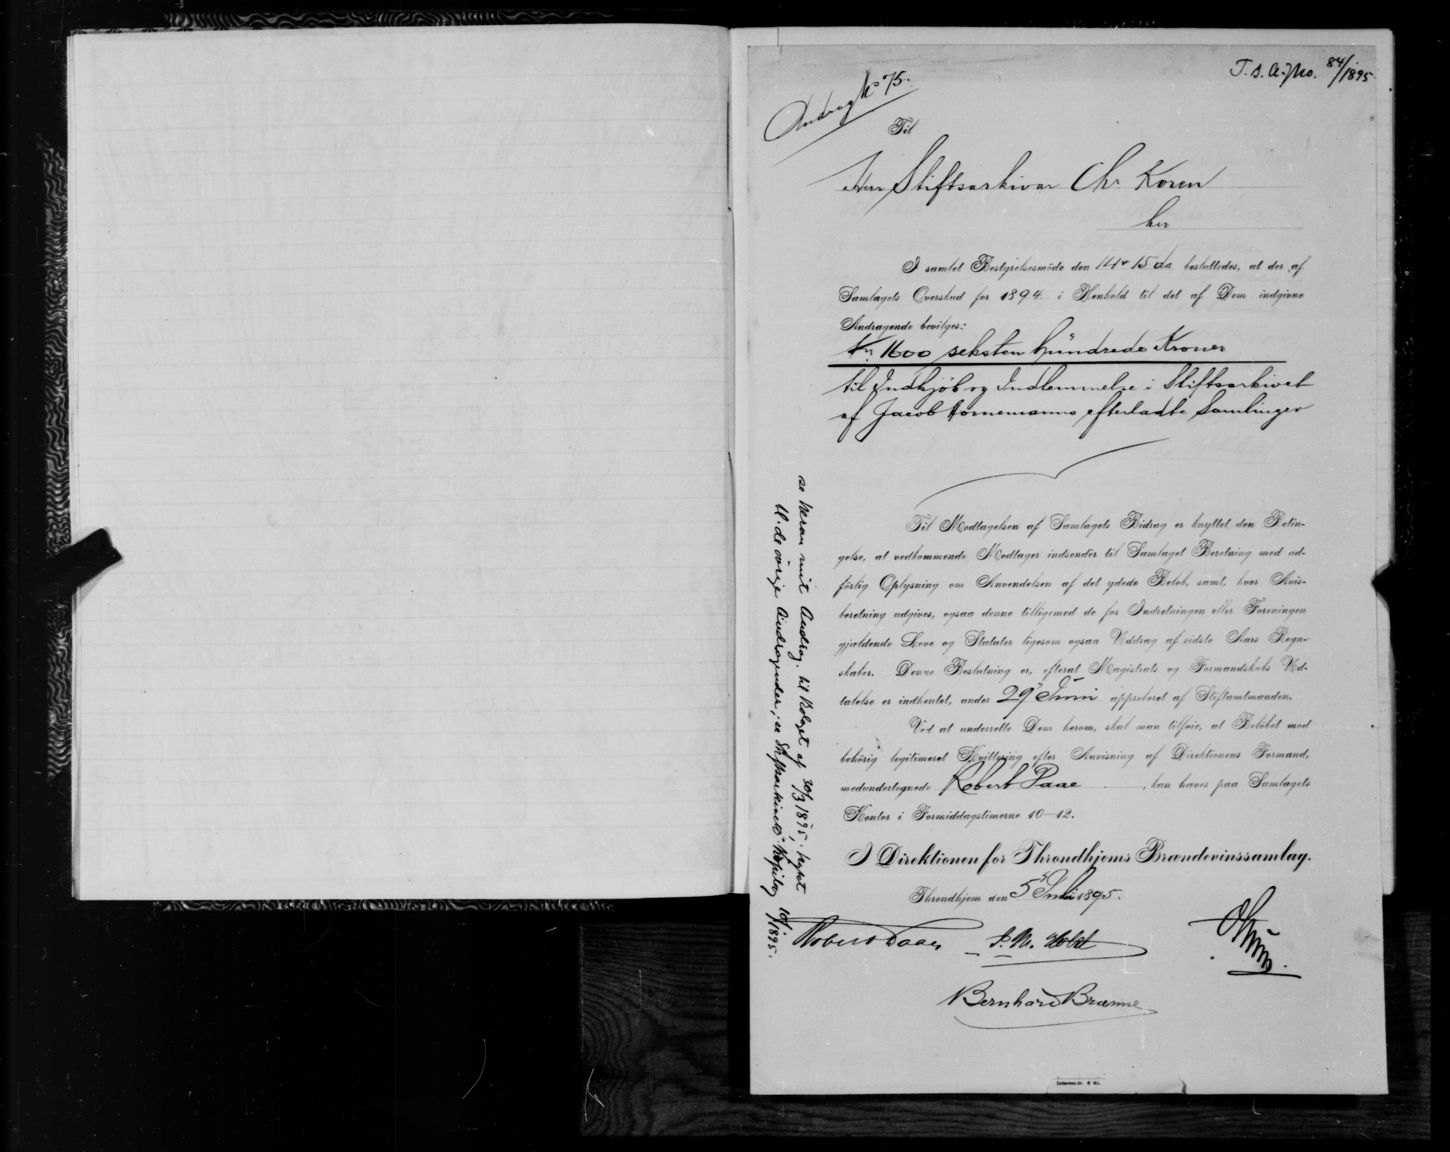 T. S. A. Jno. 84/1895
Andrag No 75.
Til
Herr Stiftsarkivar Chr Koren
her
I samlet Bestyrelsesmöde den 14 & 15 ds besluttedes, at der af
Samlagets Overskud for 1894 i Henhold til det af Dem indgivne
Andragende bevilges:
Kr 1600 seksten hundrede Kroner
til Indkjöb og Indlemmelse i Stiftsarkivet
af Jacob Hornemanns efterladte Samlinger
Til Modtagelsen af Samlagets Bidrag er knyttet den Betin-
gelse, at vedkommende Modtager indsender til Samlaget Beretning med ud-
förlig Oplysning om Anvendelsen af det ydede Belöb, samt, hvor Avis-
beretning udgives, ogsaa denne tilligemed de for Indretningen eller Foreningen
gjældende Love og Statuter ligesom ogsaa Uddrag af sidste Aars Regn-
skaber. Denne Beslutning er, efterat Magistrats og Formandskabs Ud-
talelse er indhentet, under 29 Juni approberet af Stiftamtmanden.
Ved at underrette Dem herom, skal man tilföie, at Belöbet mod
behörig legitimeret Kvittering efter Anvisning af Direktionens Formand,
medundertegnede Robert Paae, kan haves paa Samlagets
Kontor i Formiddagstimerne 10-12.
I Direktionen for Throndhjems Brændevinssamlag.
Throndhjem den 5 Juli 1895.
Robert Paae J. N. Holst
Bernhard Brænne
se heran mit Andrag. til Bolaget af 30/3 1895,
tl. de övrige Andragender, se Stiftsarkivets Kopibog 10/1895.